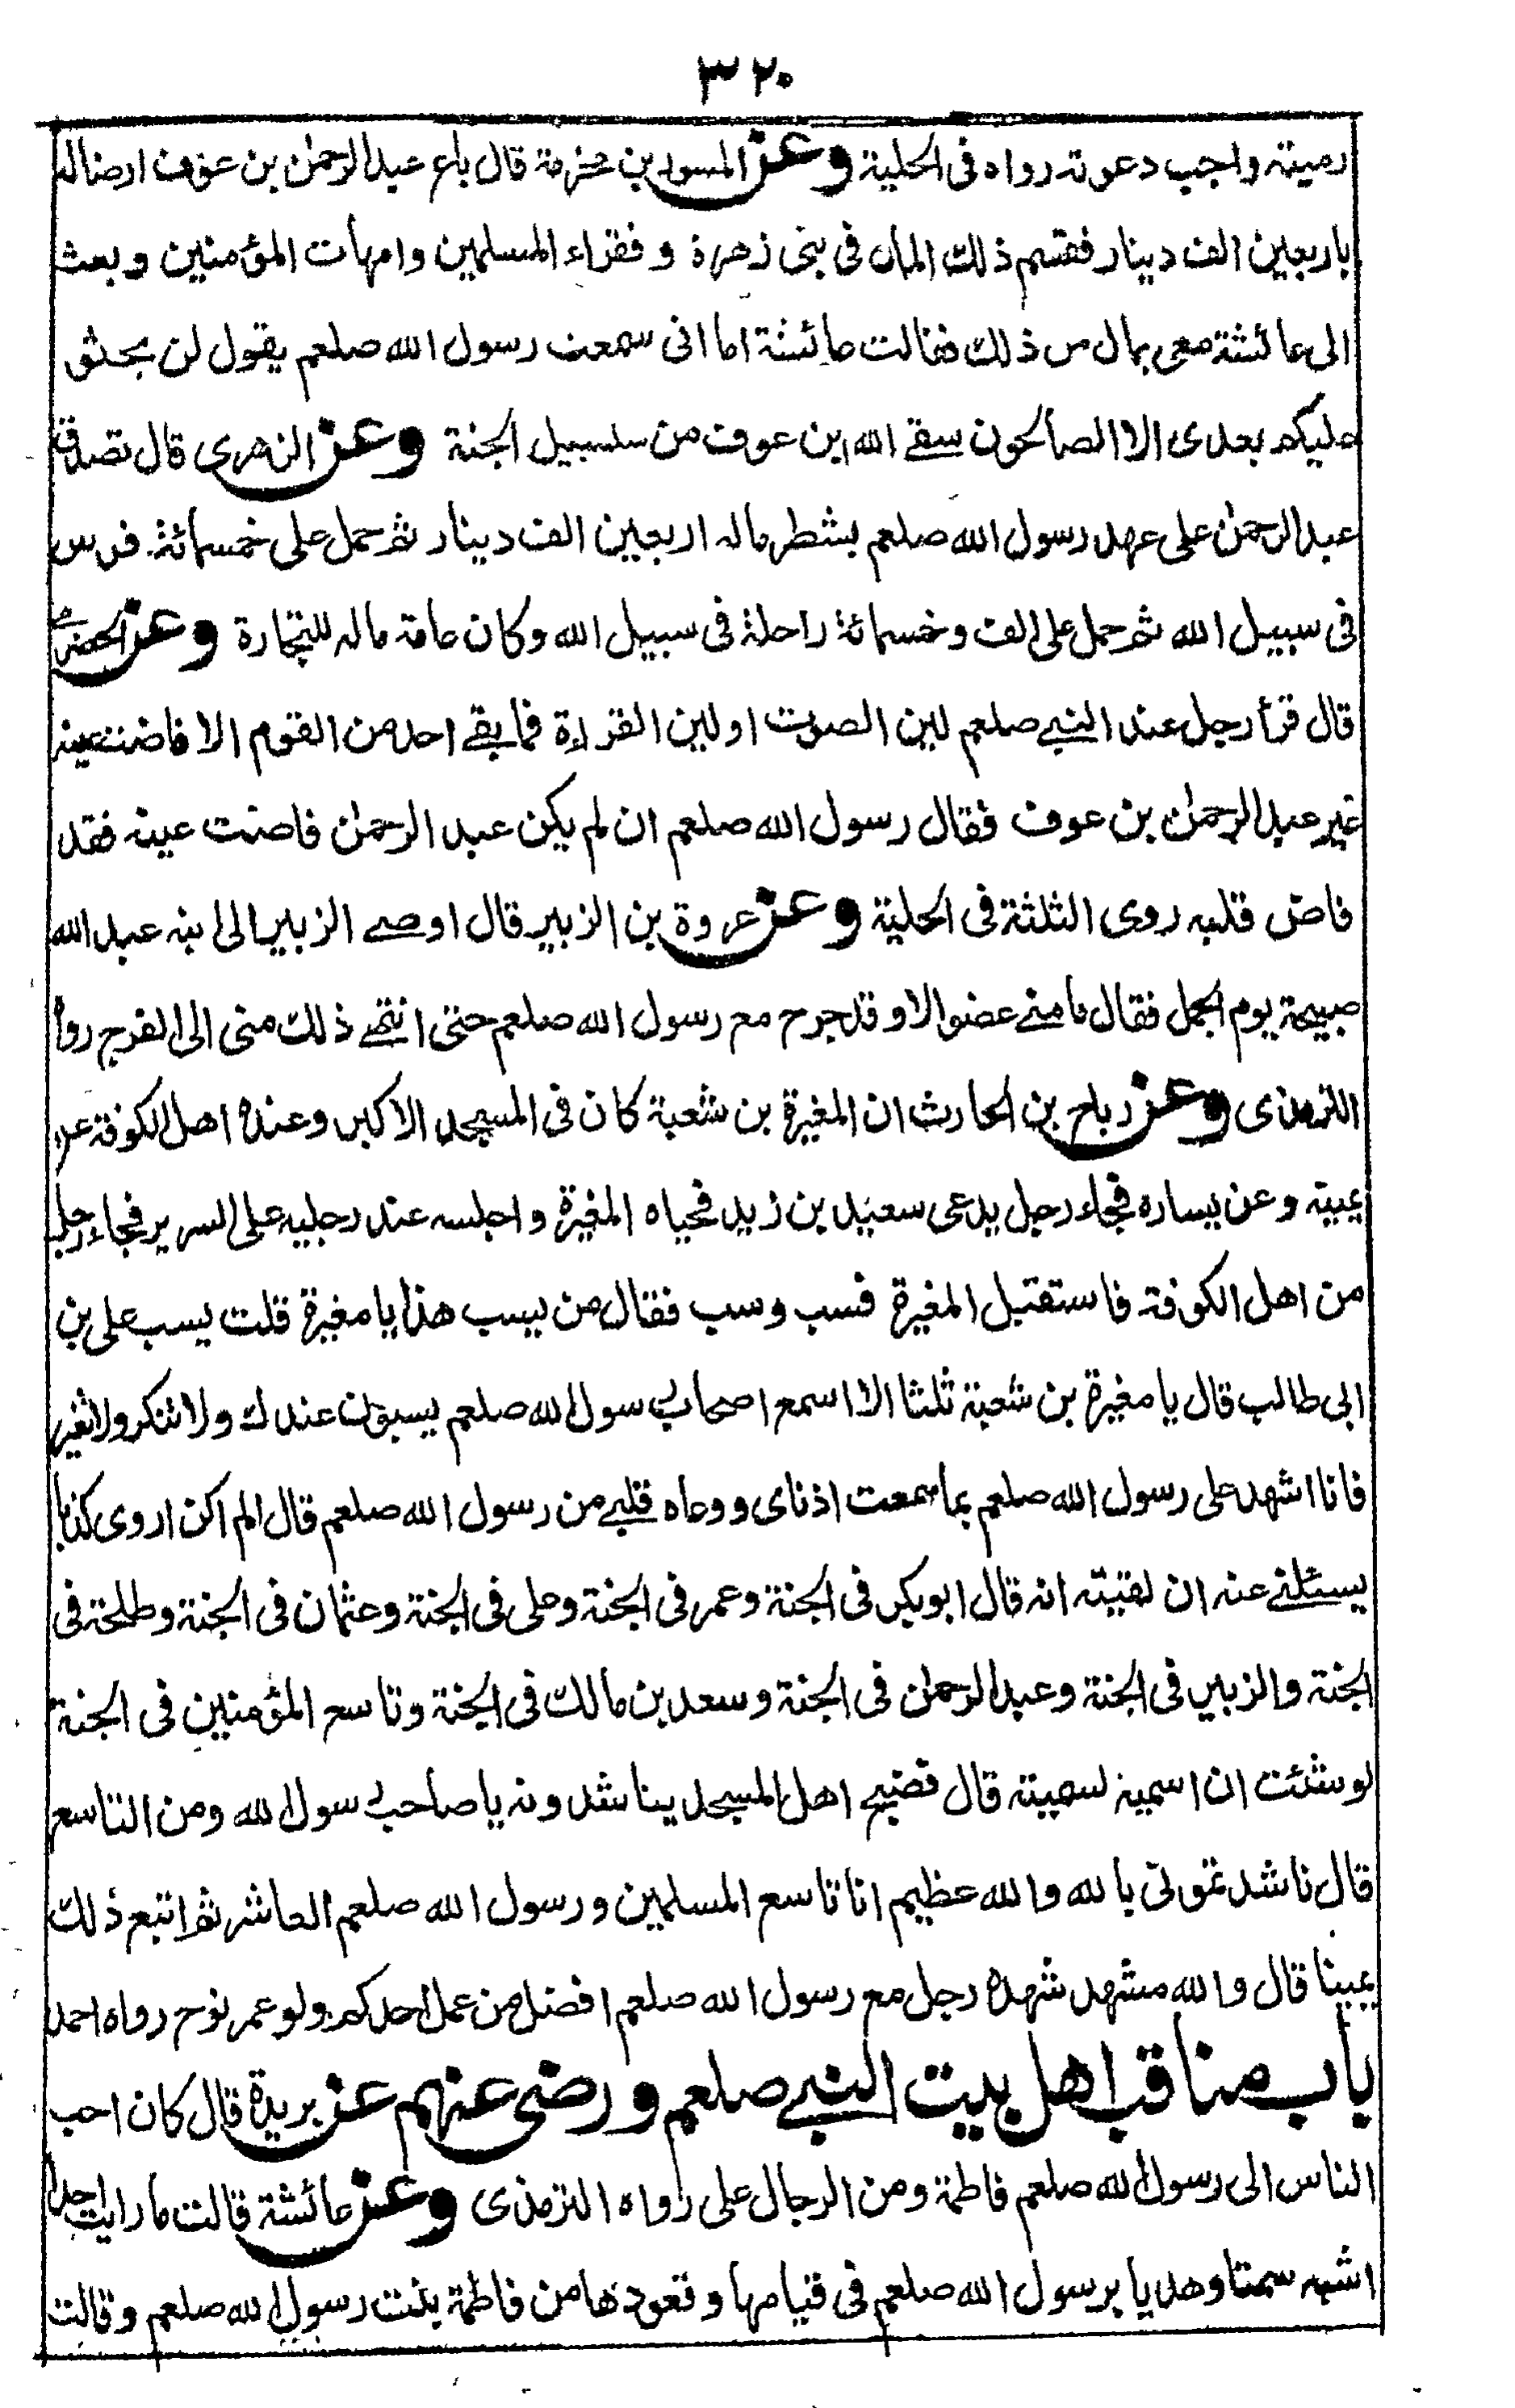 ٣٢٠
رميته واجب دعوته رواه فى الحلية وعن المسور بن مخرمة قال باع عبد الرحمن بن عوف ارضا له
باربعين الف دينار فقسم ذلك المال فى بنى زهرة و فقراء المسلمين وامهات المؤمنين و بعث
الى عائشة معى بمال من ذلك فقالت عائشة اما انى سمعت رسول الله صلعم يقول لن يحنو
عليكم بعدى الا الصالحون سقے الله ابن عوف من سلسبيل الجنة وعن الزهرى قال تصدق
عبد الرحمن على عهد رسول الله صلعم بشطر ماله اربعين الف دينار ثم حمل على خمسمائة فرس
فى سبيل الله ثم حمل على الف وخمسمائة راحلة فى سبيل الله وكان عامة ماله للتجارة وعن الحضرمے
قال قرأ رجل عند النبے صلعم لين الصوت او لين القراءة فما بقے احد من القوم الا فاضت عينه
غير عبد الرحمن بن عوف فقال رسول الله صلعم ان لم يكن عبد الرحمن فاضت عينه فقد
فاض قلبه روى الثلثة فى الحلية وعن عروة بن الزبير قال اوصے الزبير الى ابنه عبد الله
صبيحة يوم الجمل فقال ما منے عضو الا وقد جرح مع رسول الله صلعم حتى انتهے ذلك منى الى الفرج رواه
الترمذى وعن رباح بن الحارث ان المغيرة بن شعبة كان فى المسجد الاكبر وعنده اهل الكوفة عن
يمينه وعن يساره فجاء رجل يدعى سعيد بن زيد فحياه المغيرة واجلسه عند رجليه على السرير فجاء رجل
من اهل الكوفة فاستقبل المغيرة فسب وسب فقال من يسب هذا يا مغيرة قلت يسب على بن
ابى طالب قال يا مغيرة بن شعبة ثلثا الا اسمع اصحاب رسول الله صلعم يسبون عندك ولا تنكر ولا تغير
فانا اشهد على رسول الله صلعم بما سمعت اذناى ووعاه قلبے من رسول الله صلعم قال الم اكن اروى كذبا
يسئلنے عنه ان لقيته انه قال ابو بكر فى الجنة وعمر فى الجنة وعلى فى الجنة وعثمان فى الجنة وطلحة فى
الجنة والزبير فى الجنة وعبد الرحمن فى الجنة وسعد بن مالك فى الجنة وتاسع المؤمنين فى الجنة
لو شئت ان اسميه لسميته قال فضج اهل المسجد يناشدونه يا صاحب رسول الله ومن التاسع
قال ناشدتمونى بالله والله عظيم انا تاسع المسلمين ورسول الله صلعم العاشر ثم اتبع ذلك
يمينا قال والله مشهد شهده رجل مع رسول الله صلعم افضل من عمل احدكم ولو عمر عمر نوح رواه احمد
باب مناقب اهل بيت النبے صلعم ورضى عنهم عن بريدة قال كان احب
الناس الى رسول الله صلعم فاطمة ومن الرجال على رواه الترمذى وعن عائشة قالت ما رايت احدا
اشبه سمتا وهديا برسول الله صلعم فى قيامها وقعودها من فاطمة بنت رسول الله صلعم وقالت